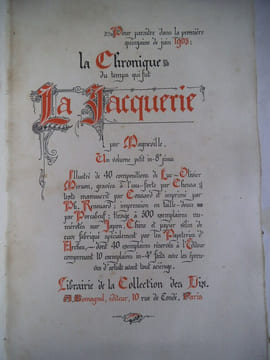 Pour paraître dans la première
quinzaine de juin 1903:
la Chronique
du temps qui fut
La Jacquerie
par Magneville.
Un volume petit in-8º jésus
Illustré de 40 compositions de Luc-Olivier
Merson, gravées à l'eau-forte par Chessa &
texte manuscrit par Coussard et imprimé par
Ph. Renouard; impression en taille-douce
par Porcabœuf; tirage à 300 exemplaires nu-
mérotés sur Japon, Chine et papier vélin de
cuve fabriqué spécialement par les Papeteries d'
Arches, — dont 40 exemplaires réservés à l'Éditeur
comprenant 10 exemplaires in-4º faits avec les épreuves
d'artiste avant tout aciérage.
Librairie de la Collection des Dix.
A. Romagnol, éditeur, 10 rue de Condé, Paris